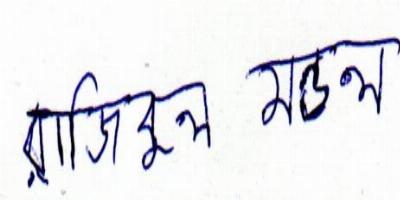 রাজিবুল মন্ডল